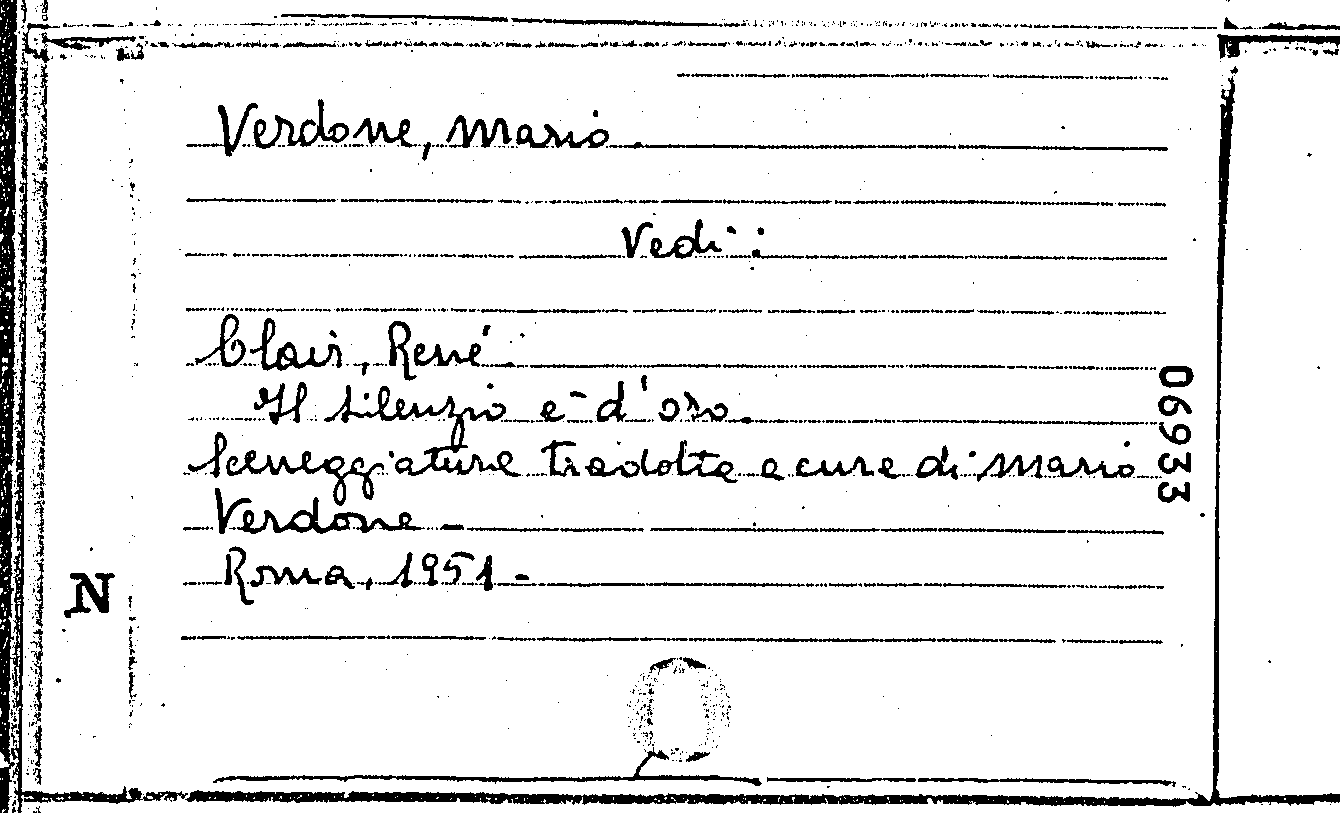 Verdone, Mario.
Vedi:
Clair, René.
Il silenzio è d'oro.
Sceneggiatura tradotta a cura di Mario
Verdone -
Roma, 1951 -
N
06933